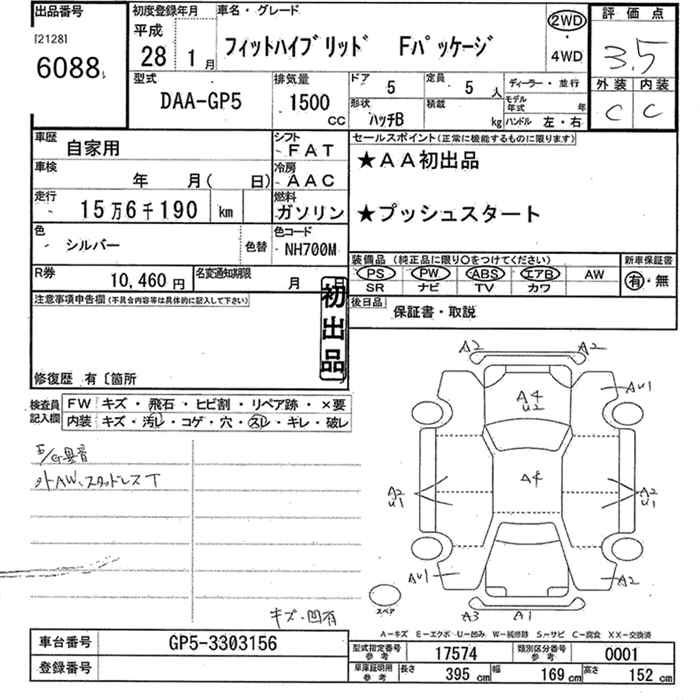 出品番号
[2128]
6088
初度登録年月
平成
28 1月
車名・グレード
フィットハイブリッド Fパッケージ
2WD
・
4WD
評価点
3.5
外装 内装
C C
型式
DAA-GP5
排気量
1500
CC
ドア
5
定員
5人
ディーラー・並行
形状
ハッチB
積載
kg
モデル年式 年
ハンドル 左・右
車歴
自家用
シフト
FAT
セールスポイント(正常に機能するものに限ります)
★AA初出品
★プッシュスタート
車検
年 月( 日)
冷房
AAC
走行
15万6千190 km
燃料
ガソリン
色
シルバー
色替
色コード
NH700M
装備品(純正品に限り○をつけてください)
PS PW ABS エアB AW
SR ナビ TV カワ
新車保証書
有・無
R券
10,460円
名変通知期限
月 日
後日品
保証書・取説
注意事項申告欄(不具合内容等は具体的に記入して下さい)
初出品
修復歴 有〔箇所
検査員記入欄
FW キズ・飛石・ヒビ割・リペア跡・×要
内装 キズ・汚レ・コゲ・穴・スレ・キレ・破レ
E/G異音
外AW、スタッドレスT
キズ・凹有
A2 A2
A4
U2
AU1
A2
U1
A4
A2
U1
AU1
A2
スペア
A3 A1
A-キズ E-エクボ U-凹み W-補修跡 S-サビ C-腐食 XX-交換済
車台番号
GP5-3303156
登録番号
型式指定番号
参考
17574
類別区分番号
参考
0001
車庫証明用
参考
長さ 395 cm 幅 169 cm 高さ 152 cm